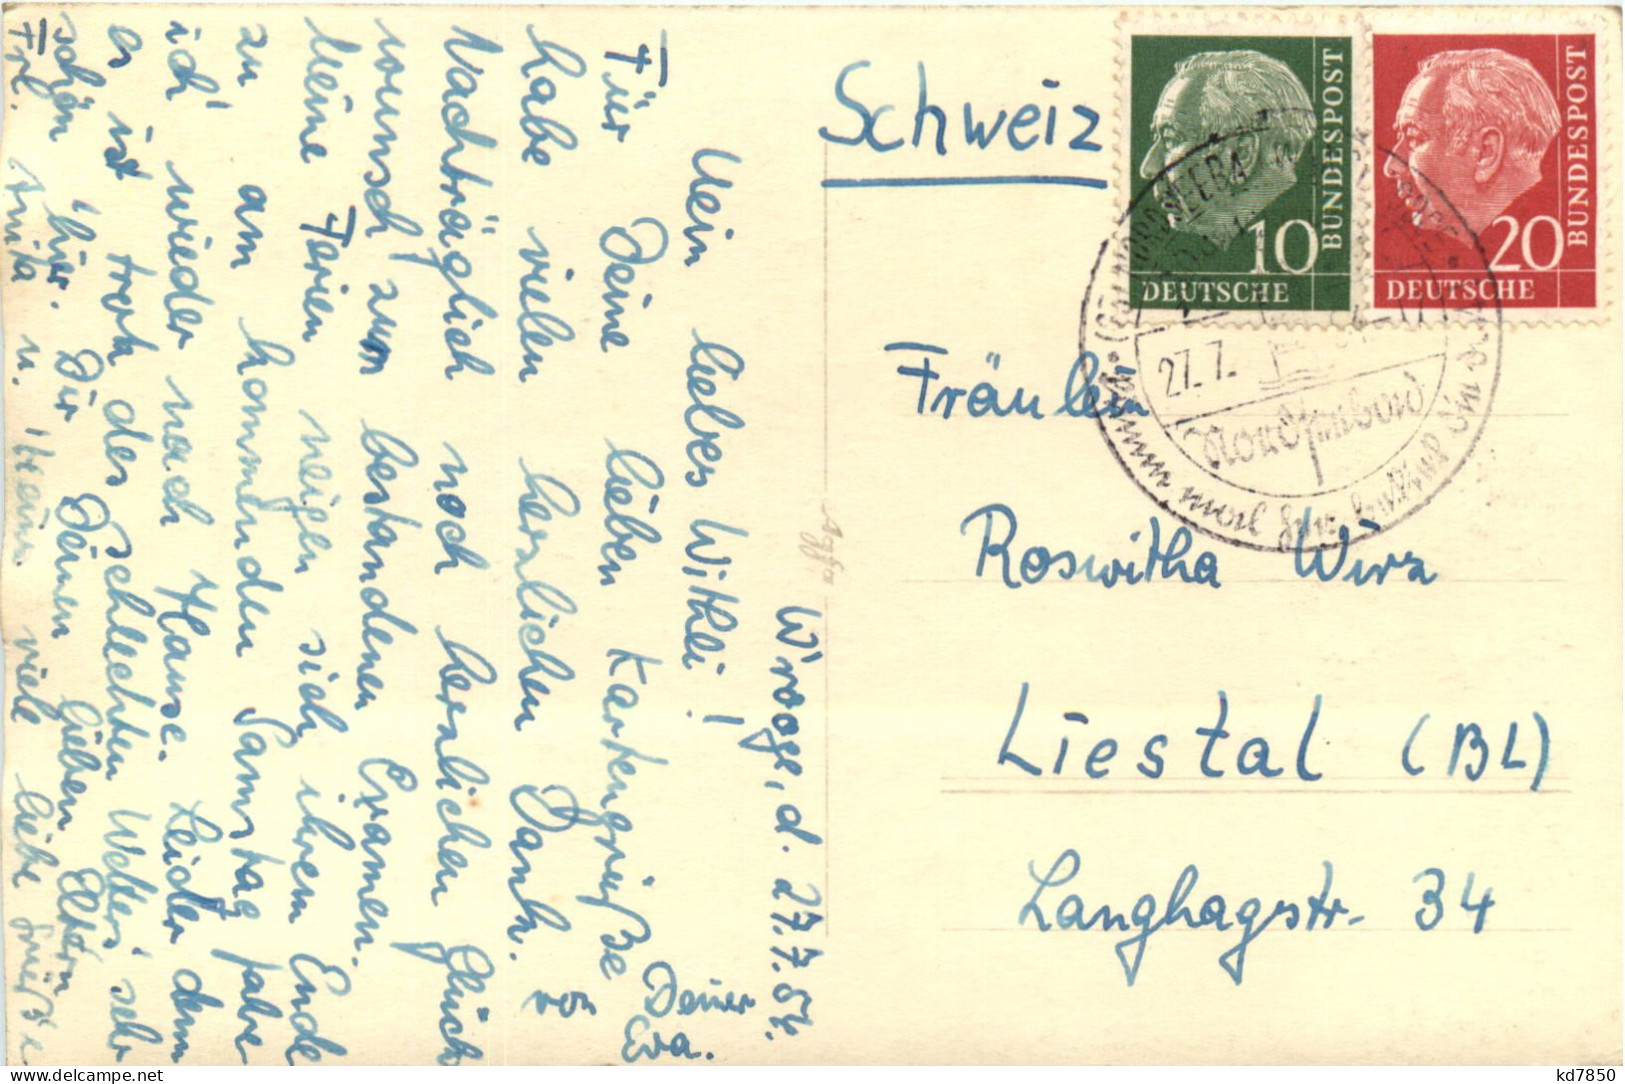 Schweiz
10
DEUTSCHE
BUNDESPOST
20
DEUTSCHE
BUNDESPOST
27.7.
Fräulein
Roswitha Wirz
Liestal (BL)
Langhagstr. 34
Agfa
d. 27.7.57.
Mein liebes Withli!
Für Deine lieben Kartengrüße
habe vielen herzlichen Dank.
Nachträglich noch herzlichen Glück
wunsch zum bestandenen Examen.
Meine Ferien neigen sich ihrem Ende
zu am kommenden Samstag fahre
ich wieder nach Hause. Leider dem
es ist trotz des schlechten Wetters sehr
schön hier. Dir Deinen lieben Eltern
Frl. Anita u. viele liebe Grüße
Deiner
Eva.
kd7850